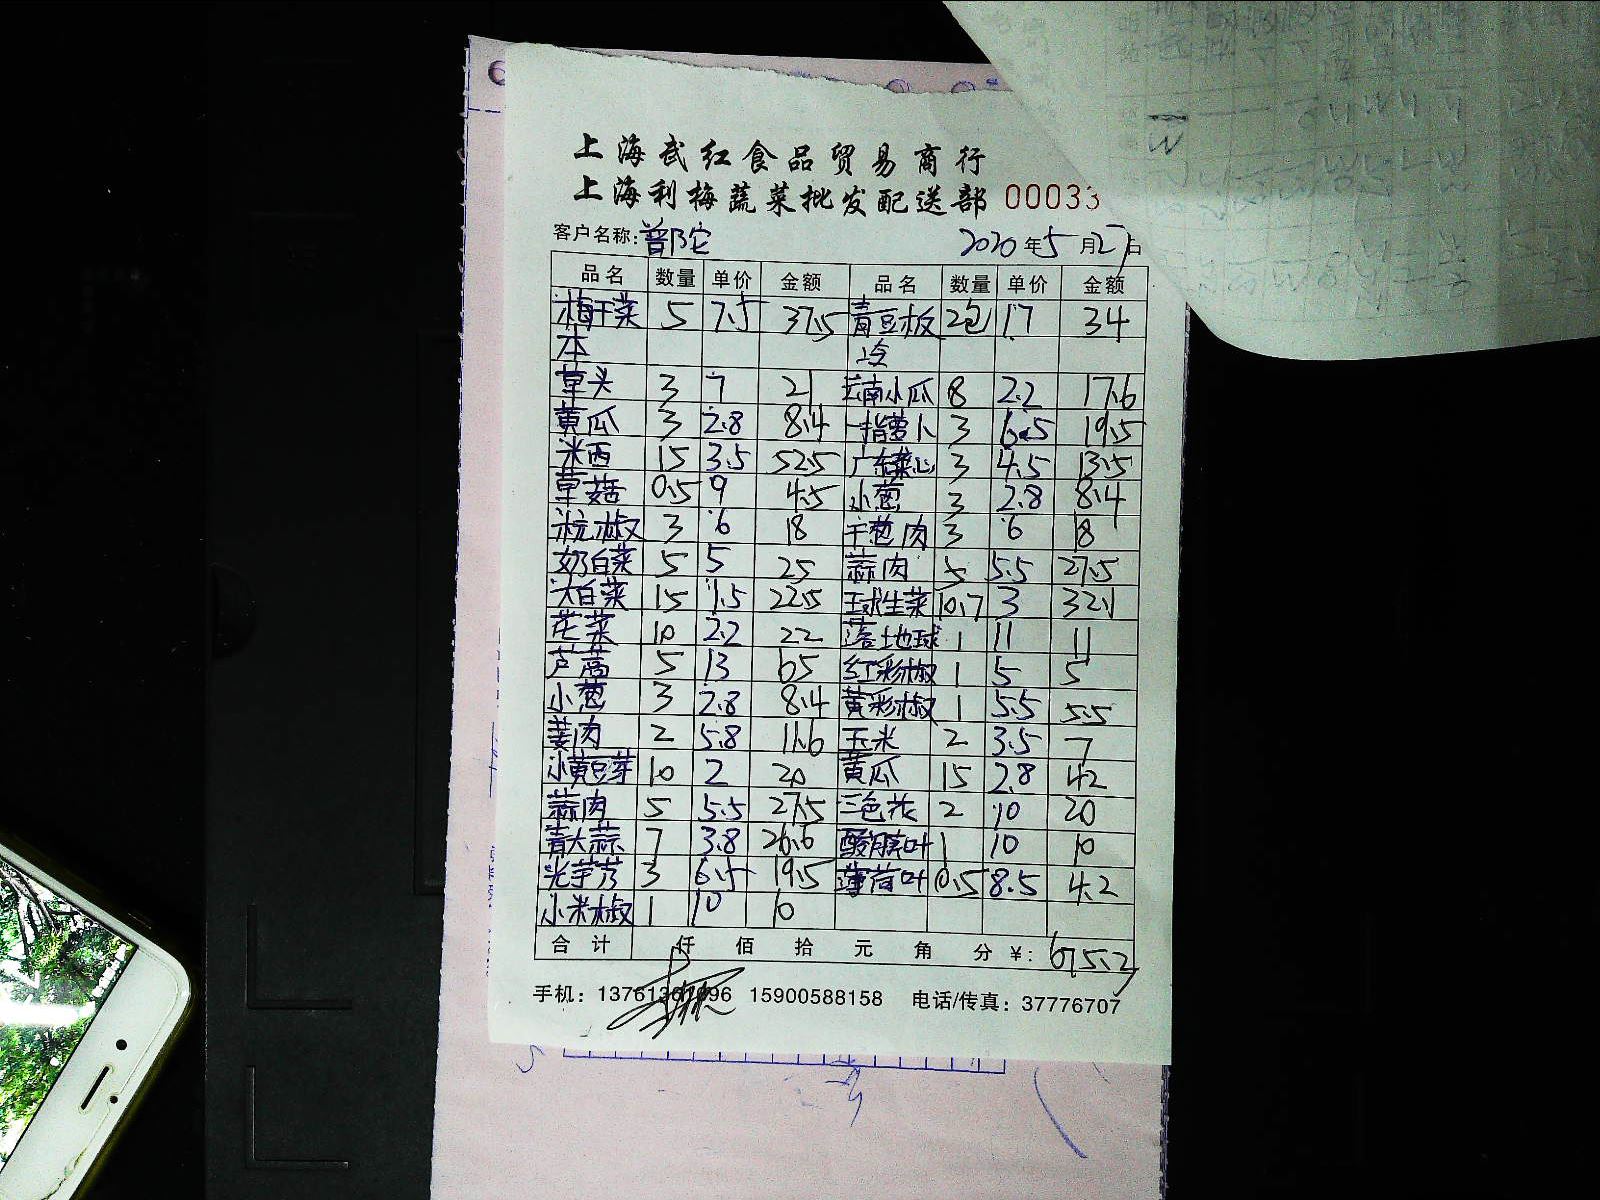 上海武红食品贸易商行
上海利梅蔬菜批发配送部 00033
客户名称: 普陀 2020年5月27日
品名 数量 单价 金额 品名 数量 单价 金额
梅干菜 5 7.5 37.5 青豆板 2包 17 34
本
草头 3 7 21 云南小瓜 8 2.2 17.6
黄瓜 3 2.8 8.4 一指萝卜 3 6.5 19.5
米西 15 3.5 52.5 广东菜心 3 4.5 13.5
草菇 0.5 9 4.5 小葱 3 2.8 8.4
杭椒 3 6 18 干葱肉 3 6 18
奶白菜 5 5 25 蒜肉 5 5.5 27.5
大白菜 15 1.5 22.5 玉球生菜 10.7 3 32.1
花菜 10 2.2 22 落地球 1 11 11
芦蒿 5 13 65 红彩椒 1 5 5
小葱 3 2.8 8.4 黄彩椒 1 5.5 5.5
姜肉 2 5.8 11.6 玉米 2 3.5 7
小黄豆芽 10 2 20 黄瓜 15 2.8 42
蒜肉 5 5.5 27.5 三色花 2 10 20
青大蒜 7 3.8 26.6 酸膜叶 1 10 10
光芋艿 3 6.5 19.5 薄荷叶 0.5 8.5 4.2
小米椒 1 10 10
合计 仟 佰 拾 元 角 分 ¥: 675.2
手机: 13761367696 15900588158 电话/传真: 37776707